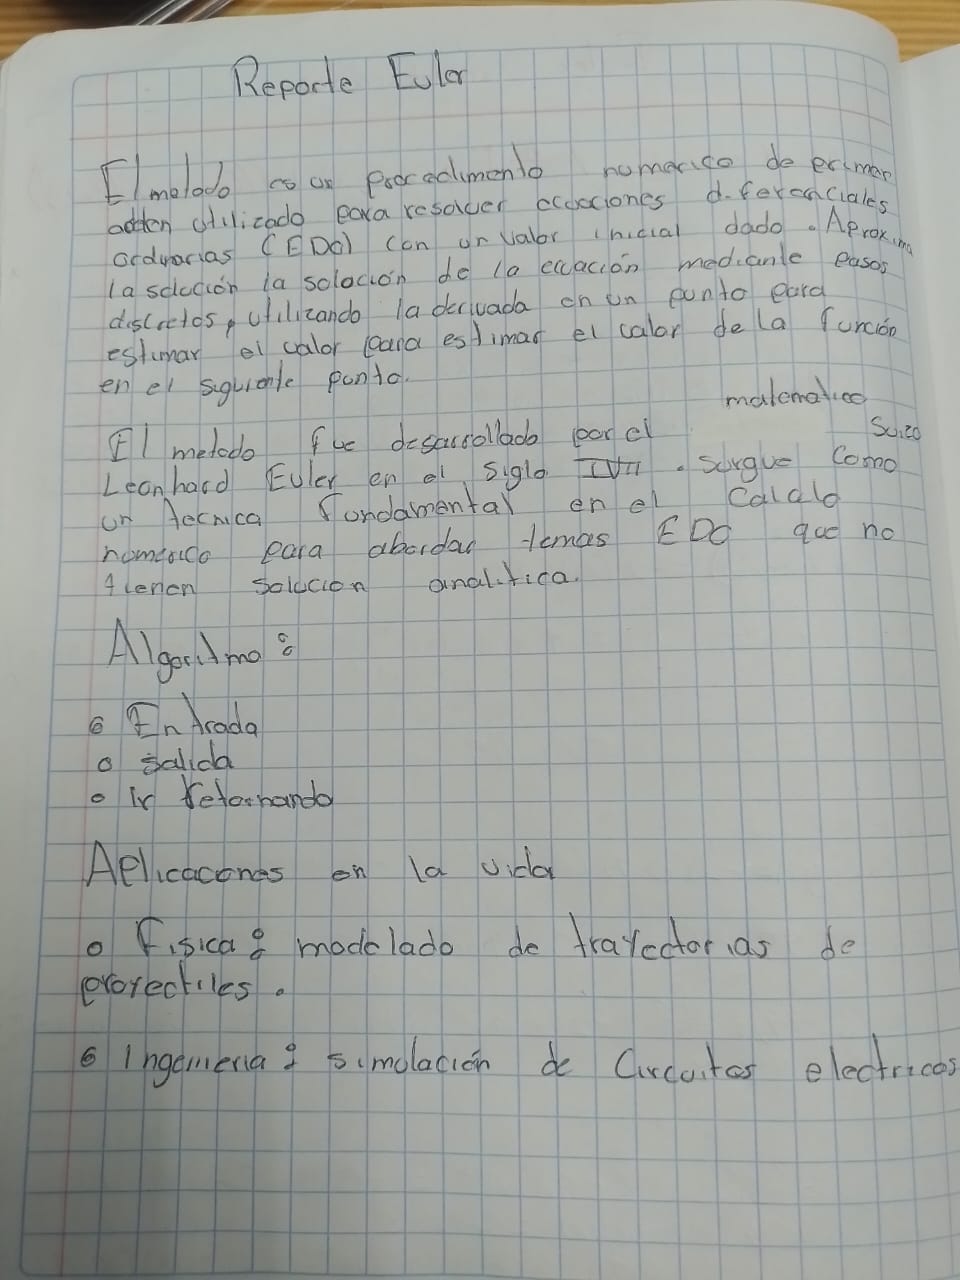 Reporte Euler
El metodo es un procedimento numerico de primer
orden utilizado para resolver ecuaciones diferenciales
ordinarias (EDO) con un valor inicial dado. Aproxima
la solución la solocion de la ecuación mediante pasos
discretos, utilizando la derivada en un punto para
estimar el valor para estimar el valor de la función
en el siguiente punto.
El metodo fue desarrollado por el matematico Suizo
Leonhard Euler en el siglo IVII. surgue como
un tecnica fundamental en el Calculo
numerico para abordar temas EDO que no
tienen solucion analitica.
Algoritmo:
o Entrada
o salida
o Ir retornando
Aplicacones en la vida
o Fisica: modelado de trayectorias de
proyectiles.
o Ingenieria: simulación de Circuitos electricos